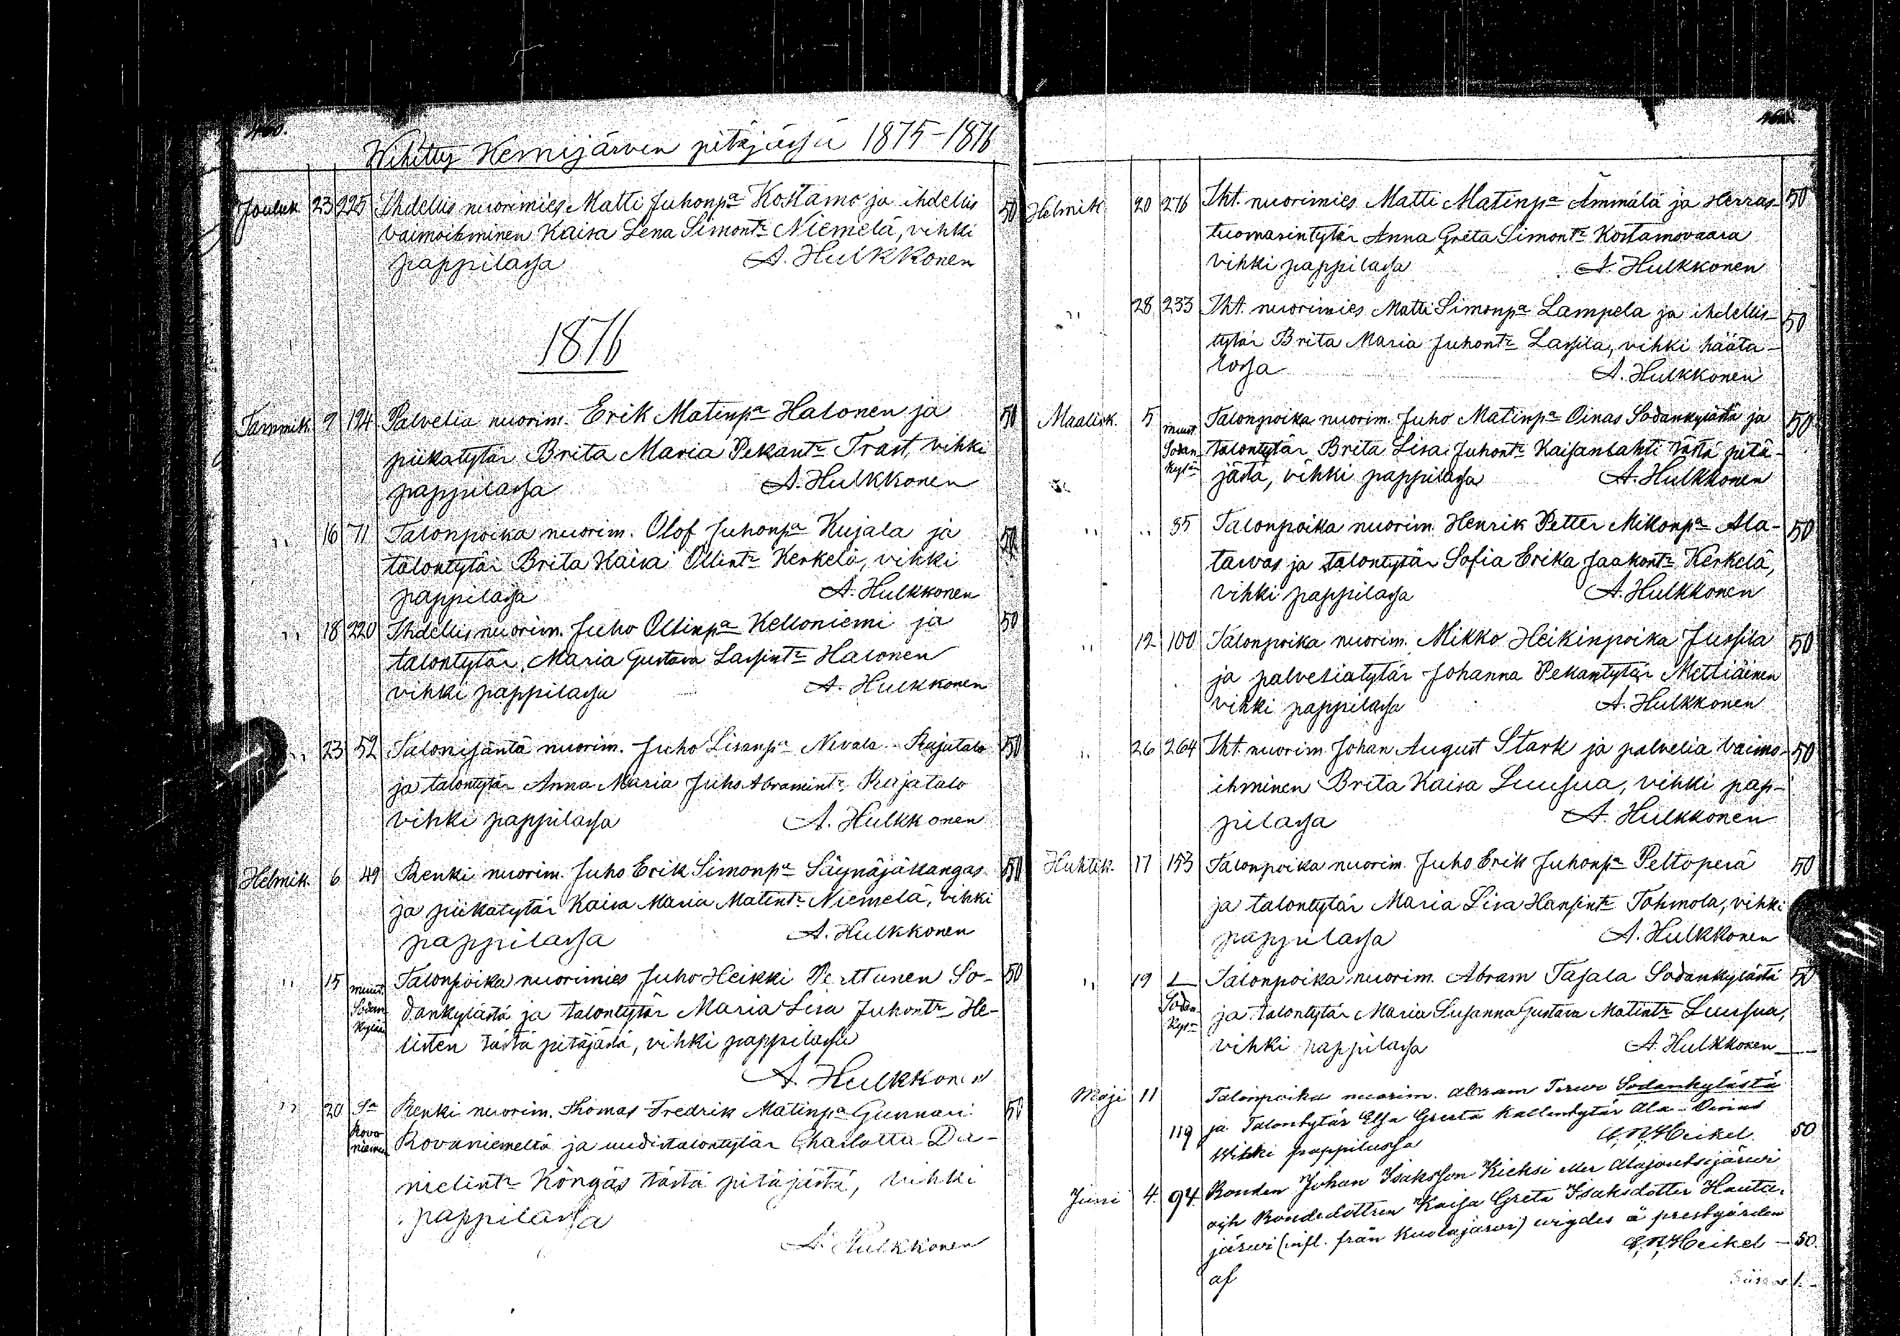 460.
Wihitty Kemijärven pitäjässä 1875-1876
Jouluk 23 225 Ihdellis nuorimies Matti Juhonpa Kostamo ja ihdellis 50
vaimoihminen Kaisa Lena Simontr Niemelä, vihki
pappilassa A. Hulkkonen
1876
Tammik. 9 194 Palvelia nuorim. Erik Matinpa Halonen ja 50
piikatytär Brita Maria Pekantr Trast, vihki
pappilassa A. Hulkkonen
" 16 71 Talonpoika nuorim. Olof Juhonpa Kujala ja 50
talontytär Brita Kaisa Ollintr Kerkelä, vihki
pappilassa A. Hulkkonen
" 18 220 Ihdellis nuorim. Juho Ollinpa Kelloniemi ja 50
talontytär Maria Gustava Lassintr Halonen
vihki pappilassa A. Hulkkonen
" 23 52 Talonisäntä nuorim. Juho Nivala Rajatalo 50
ja talontytär Anna Maria Juho Abramintr Rajatalo
vihki pappilassa A. Hulkkonen
Helmik. 6 49 Renki nuorim. Juho Erik Simonpa Säynäjäkangas 50
ja piikatytär Kaisa Maria Matintr Niemelä, vihki
pappilassa A. Hulkkonen
" 15 muut. Sodankylään Talonpoika nuorimies Juho Heikki Perttunen So- 50
dankylästä ja talontytär Maria Lisa Juhontr He-
listen tästä pitäjästä, vihki pappilassa
A. Hulkkonen
" 20 Rovaniemen Renki nuorim. Thomas Fredrik Matinpa Gunnari 50
Rovaniemeltä ja uudistalontytär Charlotta Da-
nielintr Köngäs tästä pitäjästä, vihki
pappilassa
A. Hulkkonen
Helmik 20 276 Iht. nuorimies Matti Matinpa Ämmälä ja Herras- 50
tuomarintytär Anna Greta Simontr Kostamovaara
vihki pappilassa A. Hulkkonen
" 28 233 Iht. nuorimies Matti Simonpa Lampela ja ihdellis- 50
tytär Brita Maria Juhontr Lassila, vihki hääta-
lossa A. Hulkkonen
Maalisk. 5 muut. Sodankylä Talonpoika nuorim. Juho Matinpa Oinas Sodankylästä ja 50
talontytär Brita Lisa Juhontr Kaisanlahti tästä pitä-
jästä, vihki pappilassa A. Hulkkonen
" " 35 Talonpoika nuorim. Henrik Petter Mikonpa Ala- 50
tarvas ja talontytär Sofia Erika Jaakontr Kerkelä,
vihki pappilassa A. Hulkkonen
" 12 100 Talonpoika nuorim. Mikko Heikinpoika Jussila 50
ja palveliatytär Johanna Pekantytär Mettiäinen
vihki pappilassa A. Hulkkonen
" 26 264 Iht. nuorim Johan August Stark ja palvelia vaimo- 50
ihminen Brita Kaisa Luusua, vihki pap-
pilassa A. Hulkkonen
Huhtik. 17 153 Talonpoika nuorim. Juho Erik Juhonpa Peltoperä 50
ja talontytär Maria Lisa Hansintr Tohmola, vihki
pappilassa A. Hulkkonen
" 19 Sodankyl. Talonpoika nuorim. Abram Tajala Sodankylästä 50
ja talontytär Maria Susanna Gustava Matintr Luusua,
vihki pappilassa A. Hulkkonen
Maji 11 Talonpoika nuorim. Abram Sodankylästä
119 ja Talontytär Elsa Greeta Kallentytär Ala-
Wihki pappilassa Heikel. 50
Juni 4. 94. Bonden Johan Isaksson Kieksi eller Alajouksijärwi
och Bondedottren Kajsa Greta Isaksdotter Hauta-
järwi (infl. från Kuolajärwi) wigdes å prestgården
af Heikel 50